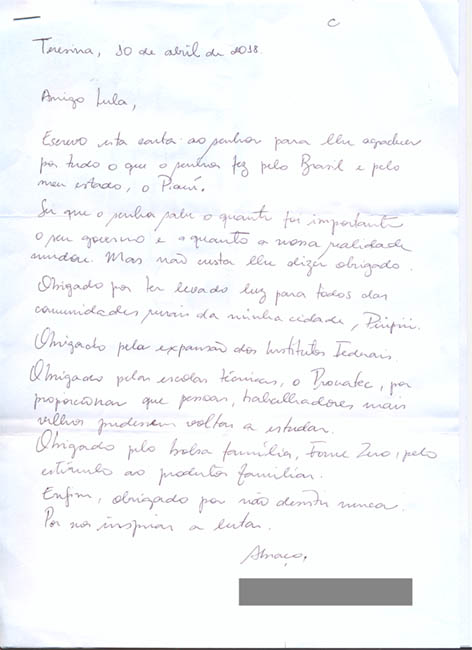 C
Teresina, 10 de abril de 2018.
Amigo Lula,
Escrevo esta carta ao senhor para lhe agradecer
por tudo o que o senhor fez pelo Brasil e pelo
meu estado, o Piauí.
Sei que o senhor sabe o quanto foi importante
o seu governo e o quanto a nossa realidade
mudou. Mas não custa lhe dizer obrigado.
Obrigado por ter levado luz para todos das
comunidades rurais da minha cidade, Piripiri.
Obrigado pela expansão dos Institutos Federais.
Obrigado pelas escolas técnicas, o Pronatec, por
proporcionar que pessoas, trabalhadores mais
velhos pudessem voltar a estudar.
Obrigado pelo bolsa família, Fome Zero, pelo
estímulo ao produtor familiar.
Enfim, obrigado por não desistir nunca.
Por nos inspirar a lutar.
Abraço,